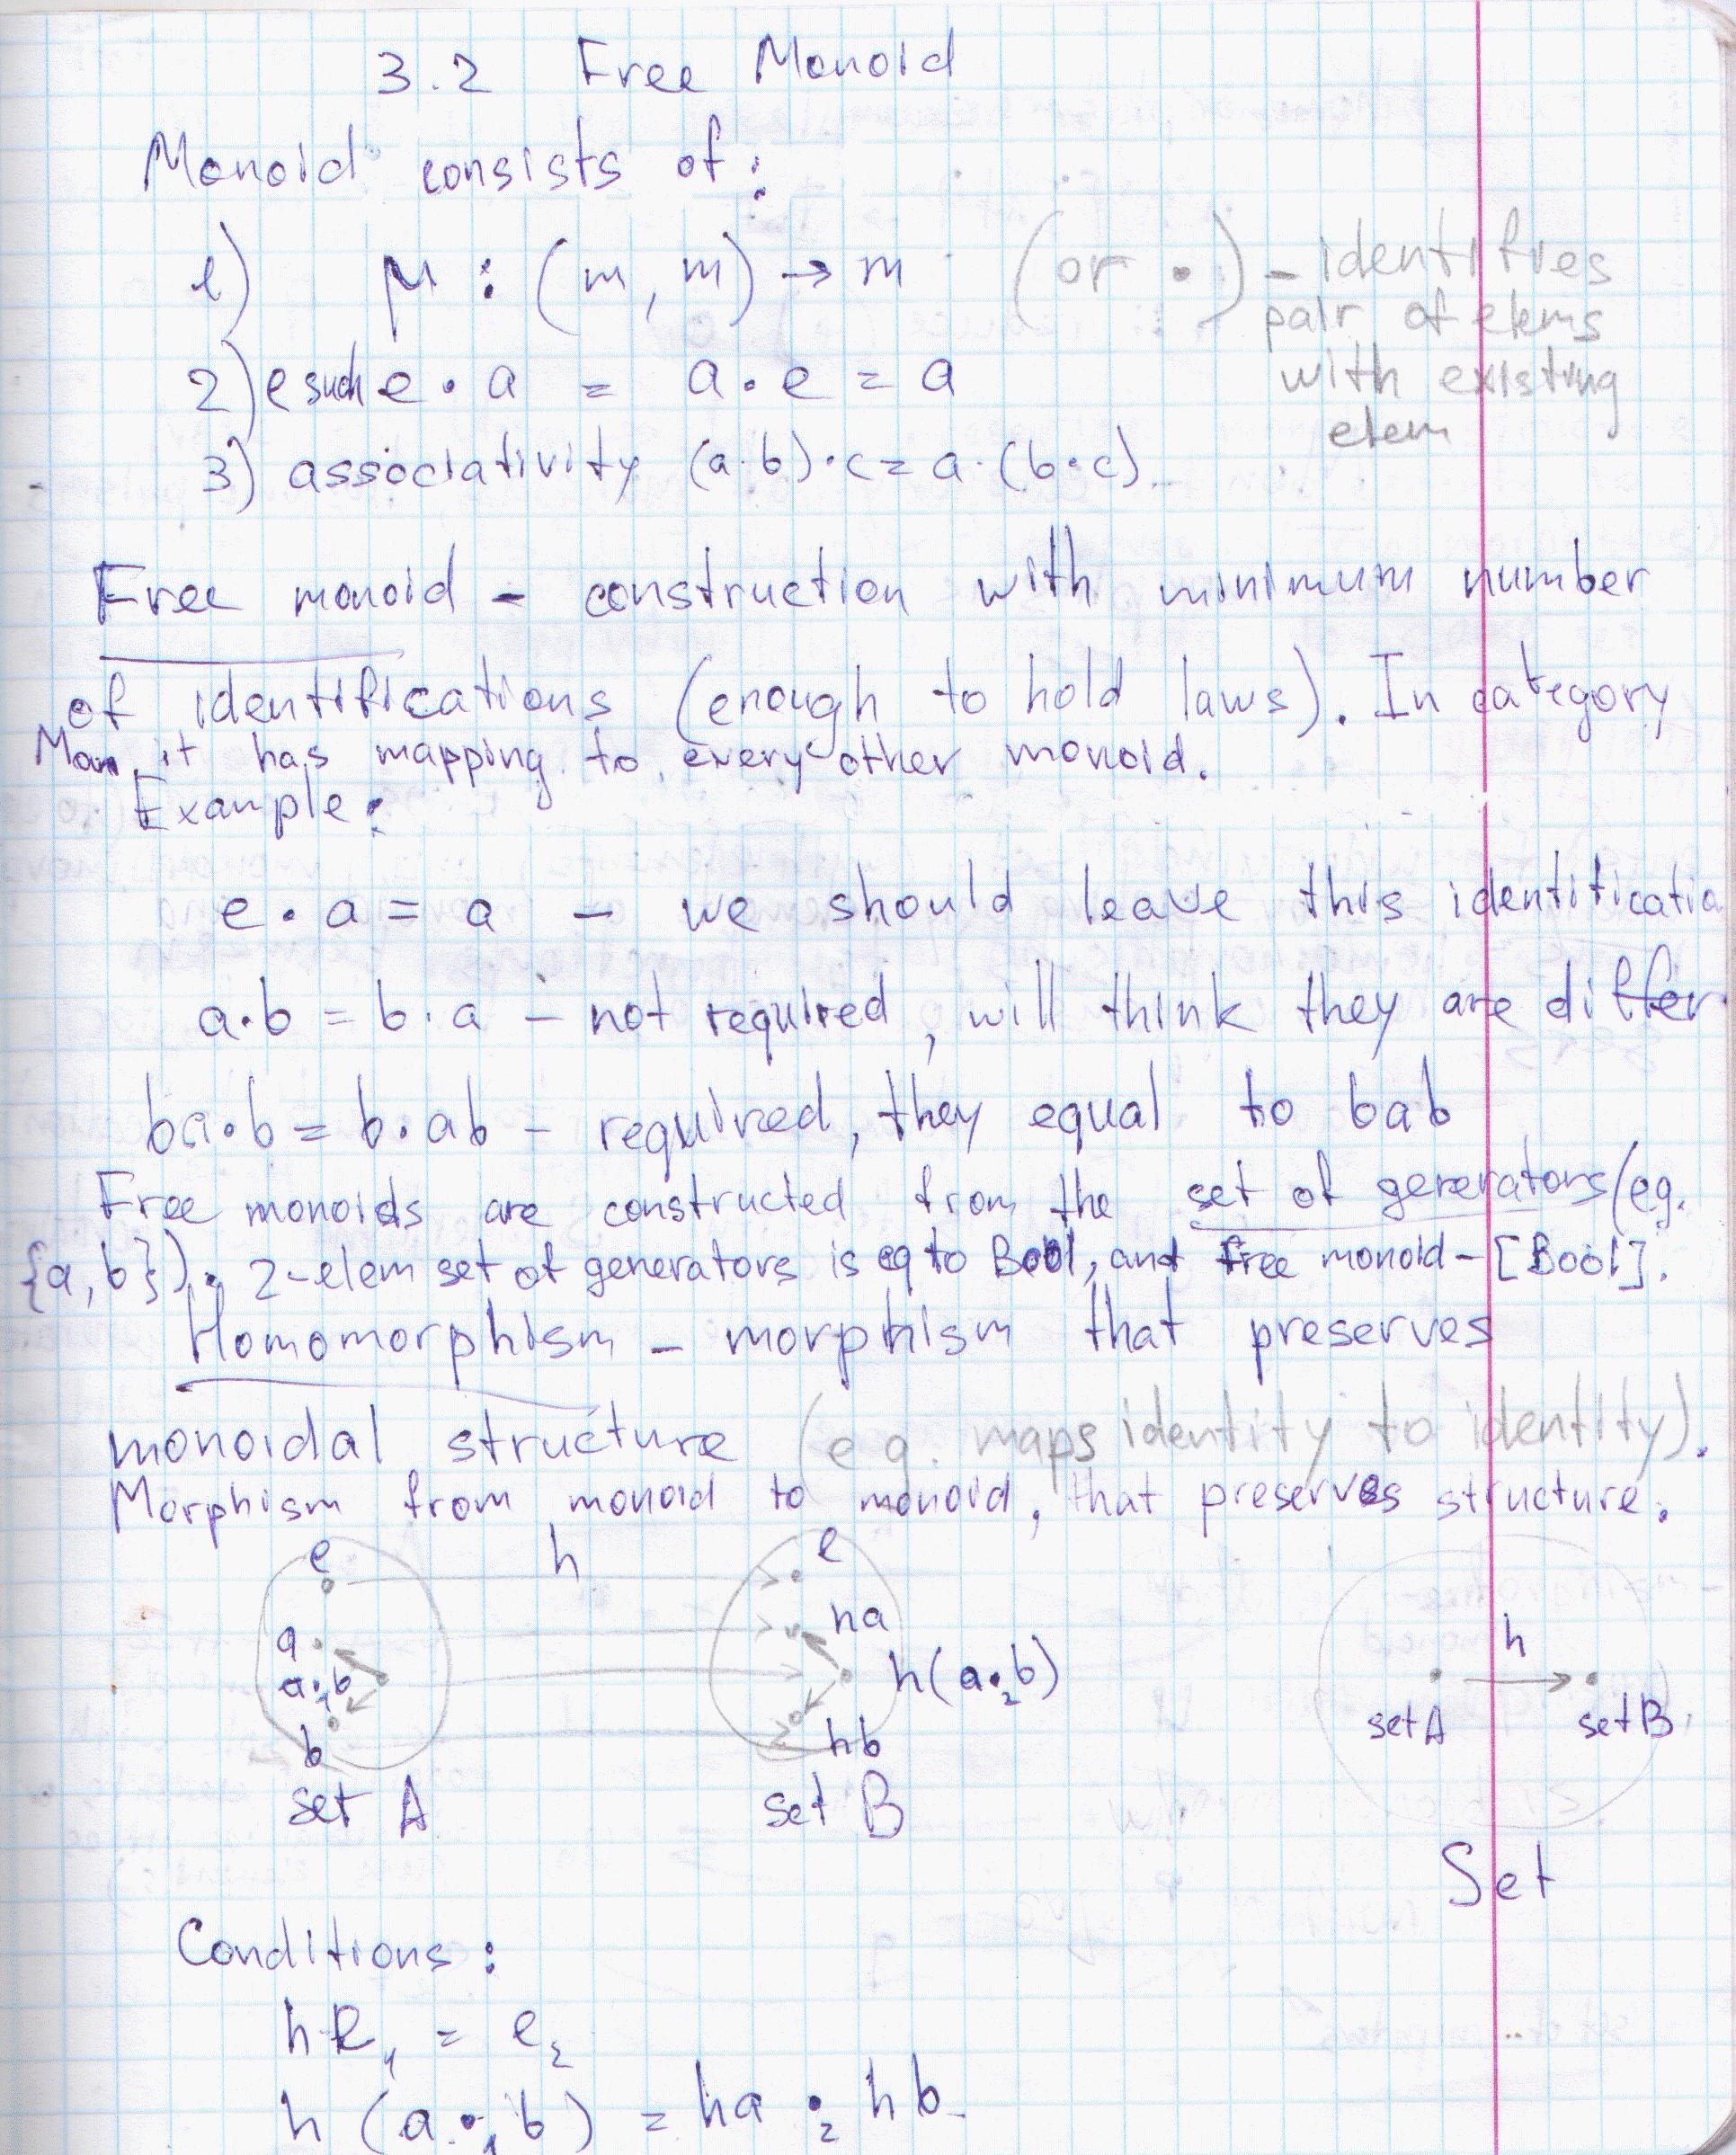 3.2 Free Monoid
Monoid consists of:
1) μ : (m, m) → m (or •) – identifies
pair of elems
2) e such e • a = a • e = a with existing
elem
3) associativity (a·b)•c = a·(b•c)
Free monoid – construction with minimum number
of identifications (enough to hold laws). In category
Mon it has mapping to every other monoid.
Example:
e • a = a – we should leave this identificatio
a•b = b·a – not required, will think they are differ
ba•b = b•ab – required, they equal to bab
Free monoids are constructed from the set of generators (eg.
{a, b}). 2-elem set of generators is eq to Bool, and free monoid – [Bool].
Homomorphism – morphism that preserves
monoidal structure (e.g. maps identity to identity).
Morphism from monoid to monoid, that preserves structure.
e h e
a ha h
a•₁b h(a•₂b)
b hb setA setB
set A set B
Set
Conditions:
h e₁ = e₂
h (a •₁ b) = ha •₂ hb